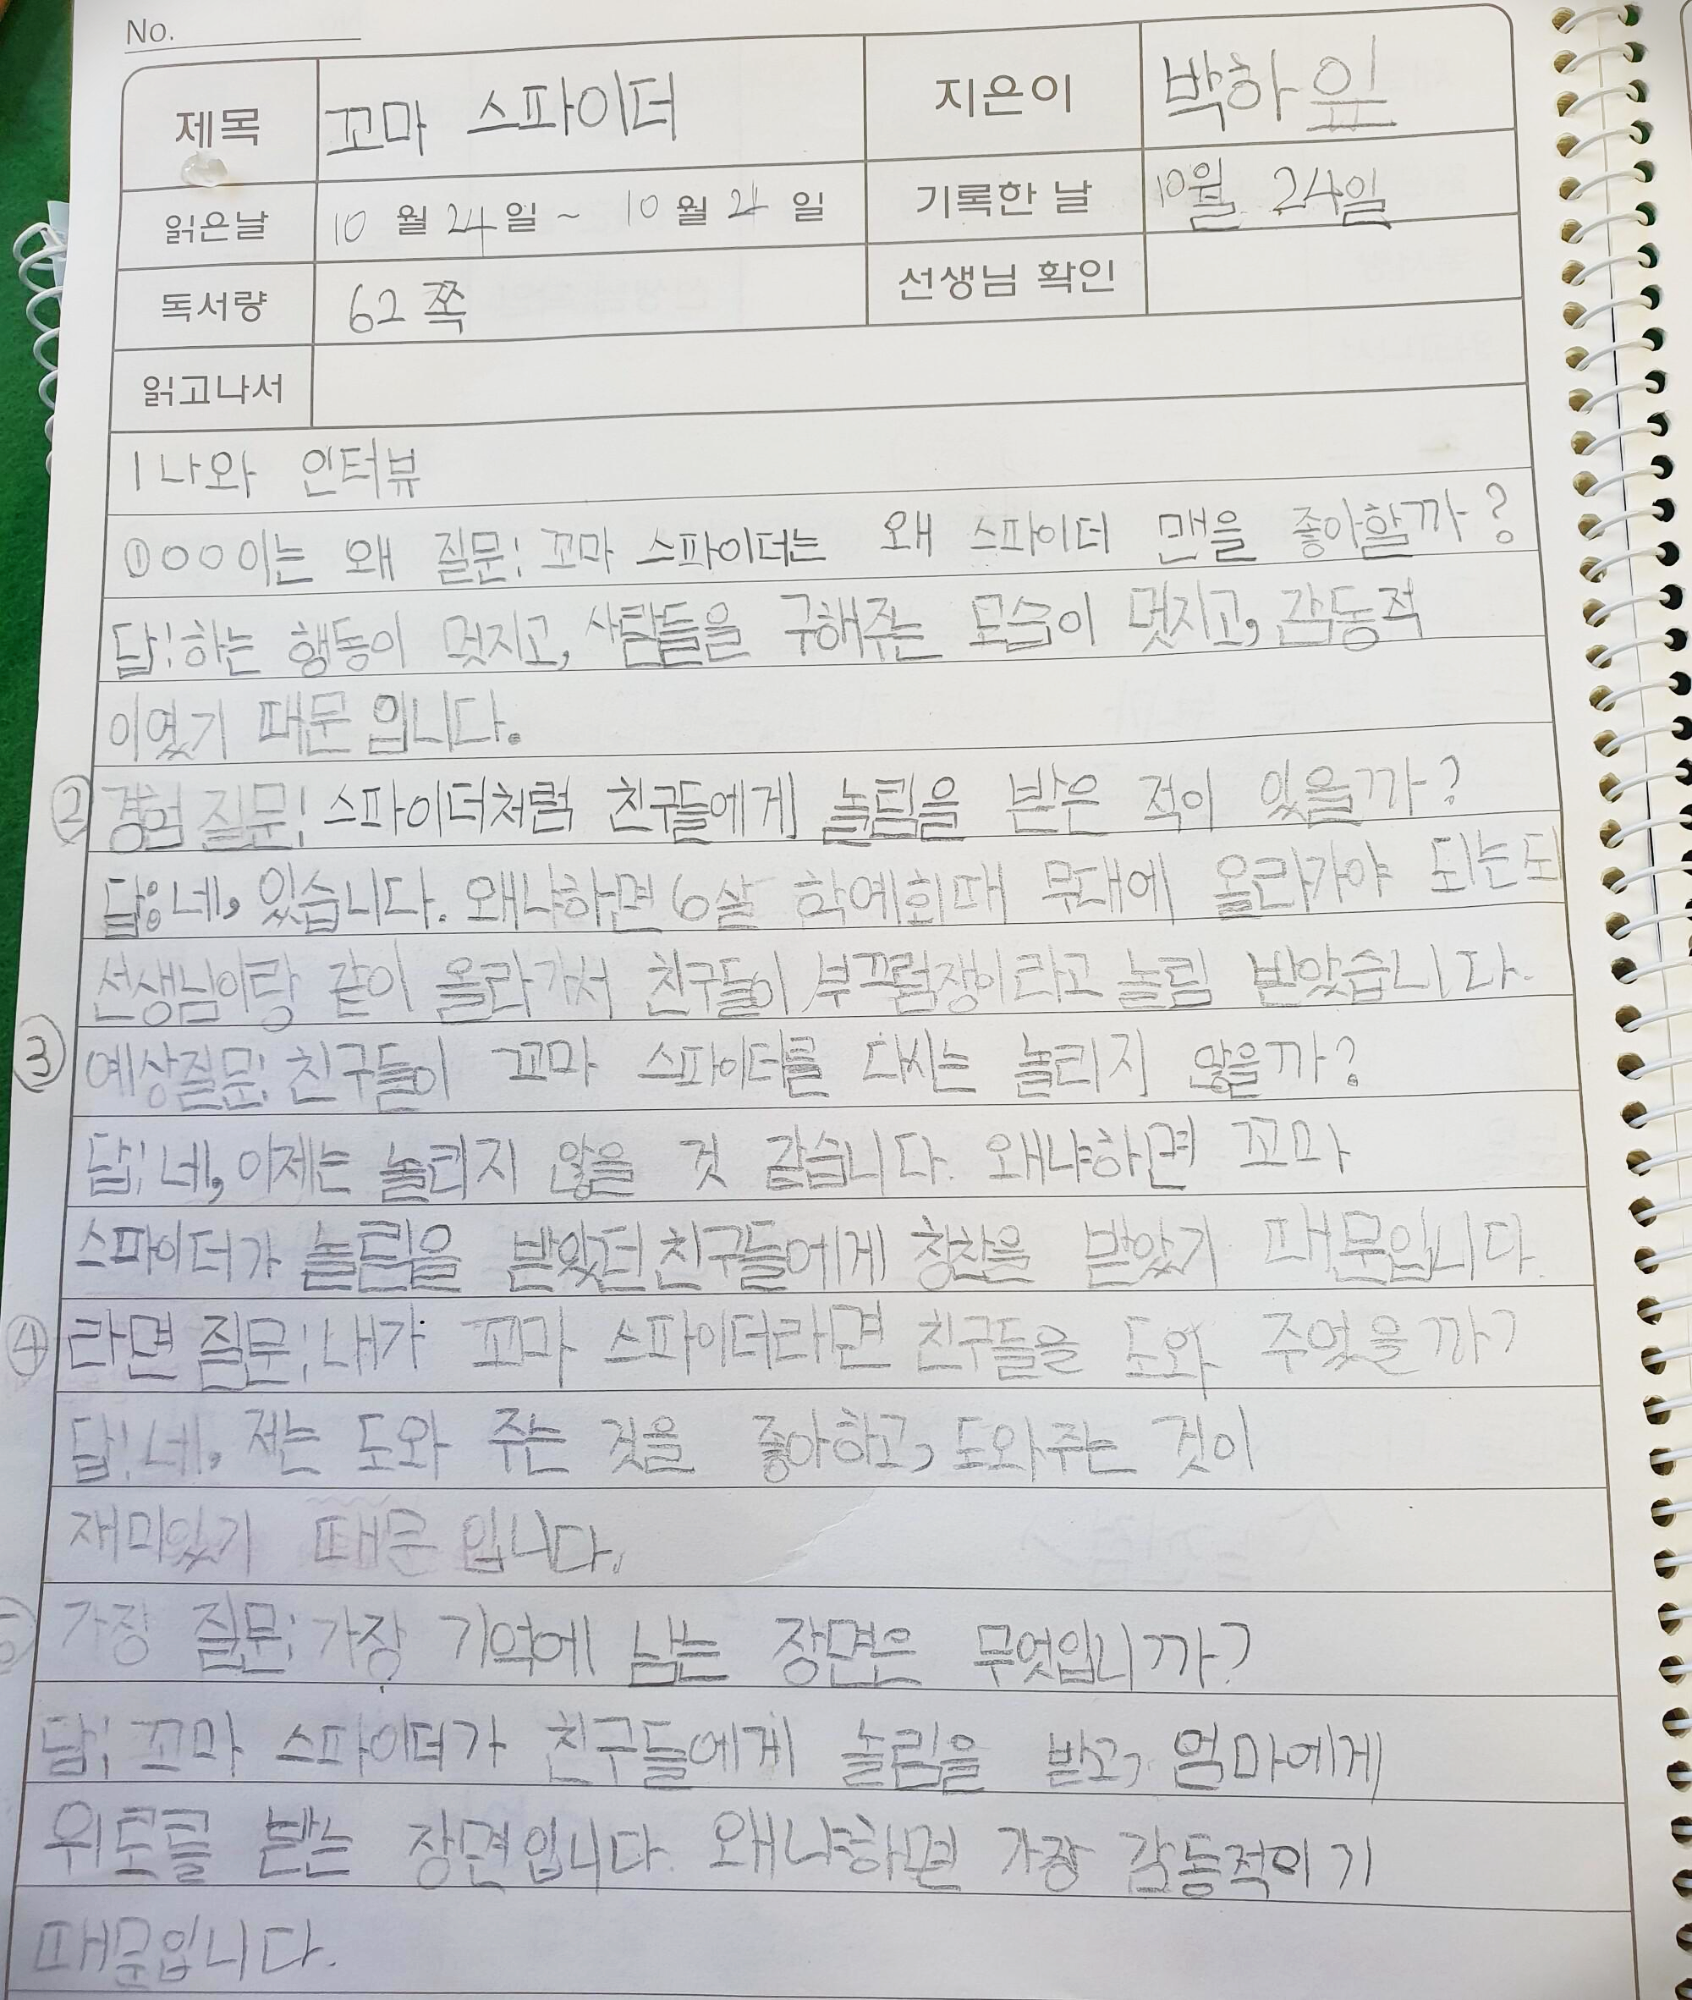 No.
제목 꼬마 스파이더 지은이 박하잎
읽은날 10월 24일 ~ 10월 24일 기록한 날 10월 24일
독서량 62쪽 선생님 확인
읽고나서
1 나와 인터뷰
①○○○이는 왜 질문: 꼬마 스파이더는 왜 스파이더 맨을 좋아할까?
답: 하는 행동이 멋지고, 사람들을 구해주는 모습이 멋지고, 감동적
이였기 때문 입니다.
② 경험 질문: 스파이더처럼 친구들에게 놀림을 받은 적이 있을까?
답: 네, 있습니다. 왜냐하면 6살 학예회때 무대에 올라가야 되는되
선생님이랑 같이 올라가서 친구들이 부끄럼쟁이라고 놀림 받았습니다.
③ 예상질문: 친구들이 꼬마 스파이더를 다시는 놀리지 않을까?
답: 네, 이제는 놀리지 않을 것 같습니다. 왜냐하면 꼬마
스파이더가 놀림을 받았던 친구들에게 칭찬을 받았기 때문입니다.
④ 라면 질문: 내가 꼬마 스파이더라면 친구들을 도와 주었을까?
답: 네, 저는 도와 주는 것을 좋아하고, 도와주는 것이
재미있기 때문 입니다.
가장 질문: 가장 기억에 남는 장면은 무엇입니까?
답: 꼬마 스파이더가 친구들에게 놀림을 받고, 엄마에게
위로를 받는 장면입니다. 왜냐하면 가장 감동적이기
때문입니다.